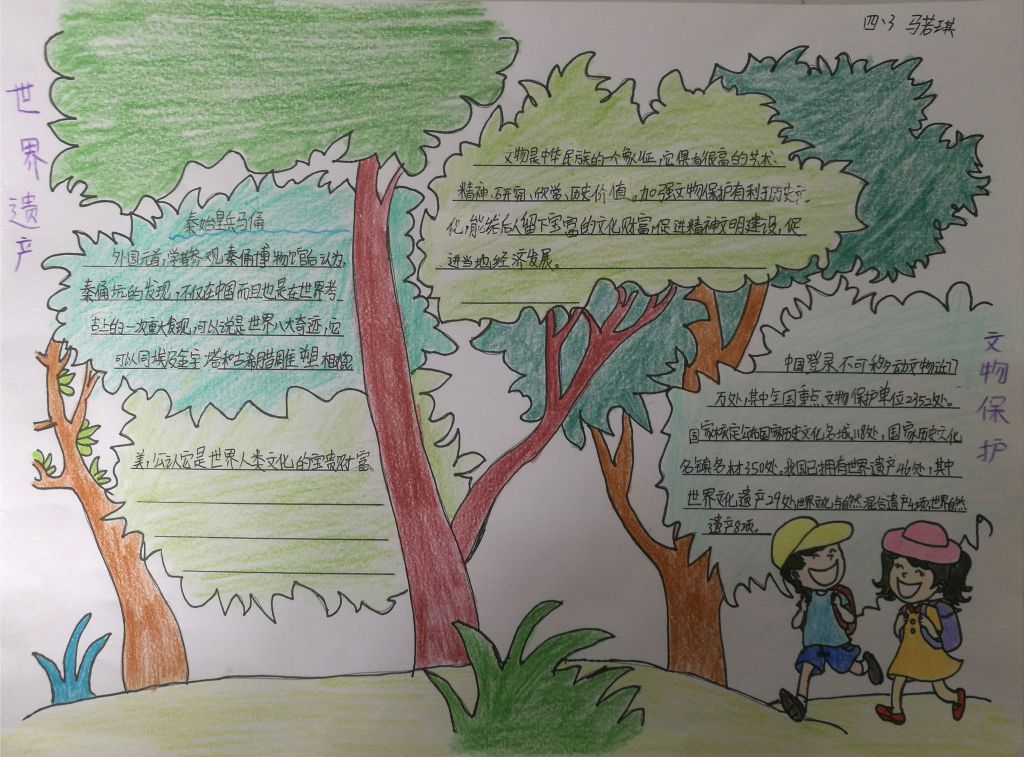 四、3 马若琪
世界遗产
文物是中华民族的一个象征,它保有很高的艺术、
精神、研究、欣赏、历史价值。加强文物保护有利于历史文
化,能给后人留下宝富的文化财富,促进精神文明建设,促
进当地经济发展。
秦始皇兵马俑
外国元首,学者参观秦俑博物馆后认为,
秦俑坑的发现,不仅在中国而且也是在世界考
古上的一次重大发现,可以说是世界八大奇迹,它
可以同埃及金字塔和古希腊雕塑相媲
美,公认它是世界人类文化的宝贵财富。
文物保护
中国登录不可移动文物近
万处,其中全国重点文物保护单位2352处。
国家核定公布国家历史文化名城118处,国家历史文化
名镇名村350处。我国已拥有世界遗产46处,其中
世界文化遗产29处,世界文化与自然混合遗产4项,世界自然
遗产8项。